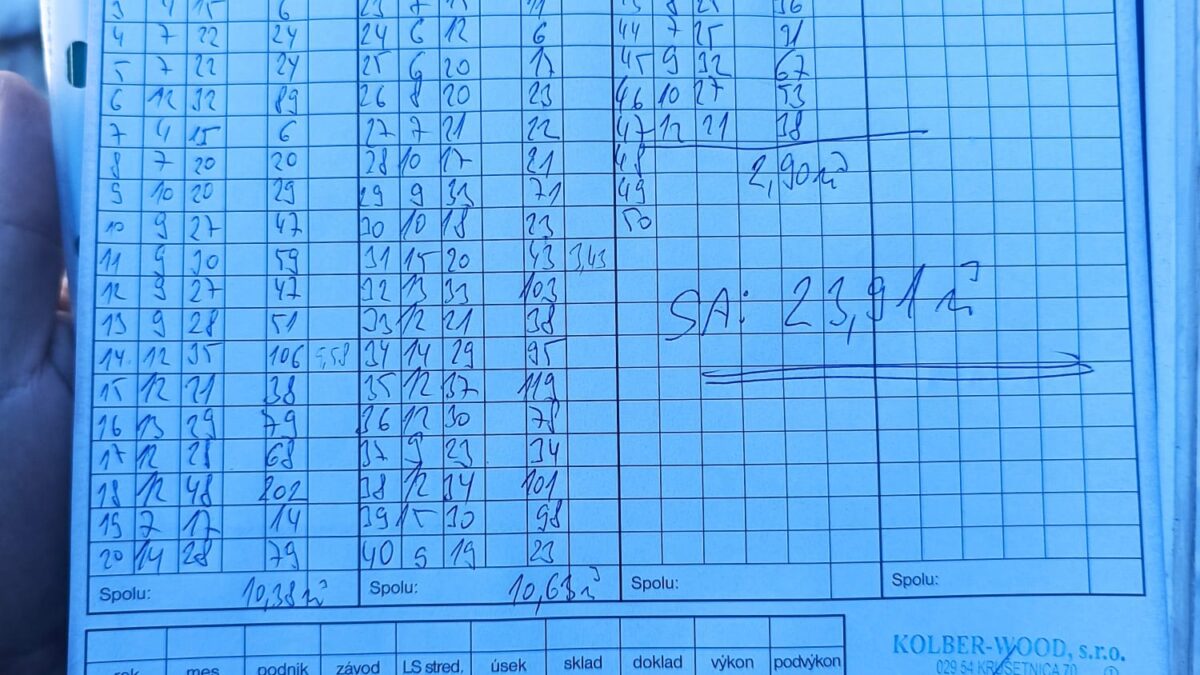 3 4 15 6 23 7 11 36
4 7 22 24 24 6 12 6 44 7 25 31
5 7 22 24 25 6 20 17 45 9 32 67
6 12 32 89 26 8 20 23 46 10 27 53
7 4 15 6 27 7 21 22 47 12 21 38
8 7 20 20 28 10 17 21 48
9 10 20 29 29 9 33 71 49 2,90 m³
10 9 27 47 30 10 18 23 50
11 9 30 59 31 15 20 43 3,43
12 9 27 47 32 13 33 103
13 9 28 51 33 12 21 38 SA: 23,91 m³
14. 12 35 106 5,58 34 14 29 95
15 12 21 38 35 12 37 119
16 13 29 79 36 12 30 78
17 12 28 68 37 9 23 34
18 12 48 202 38 12 34 101
19 7 17 14 39 15 30 98
20 14 28 79 40 9 19 23
Spolu: 10,38 m³ Spolu: 10,63 m³ Spolu: Spolu:
rok mes podnik závod LS stred. úsek sklad doklad výkon podvýkon
KOLBER-WOOD, s.r.o.
029 54 KRUŠETNICA 70